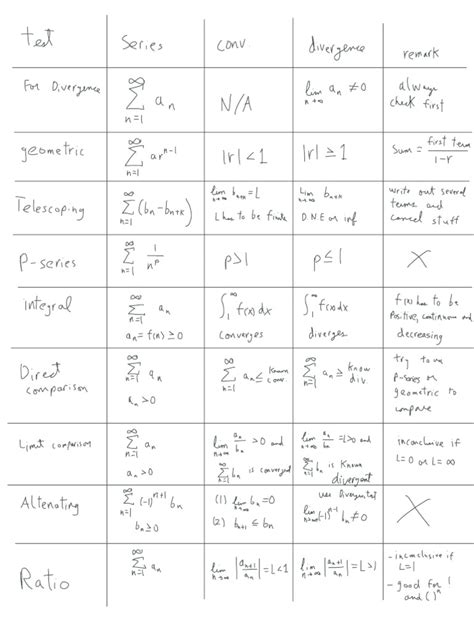 Test Series conv. divergence remark
For Divergence ∞ Σ n=1 a_n N/A lim n→∞ a_n ≠ 0 always check first
geometric ∞ Σ n=1 ar^(n-1) |r| < 1 |r| ≥ 1 Sum = first term / 1-r
Telescoping ∞ Σ n=1 (b_n - b_n+k) lim n→∞ b_n+k = L
L has to be finite
lim n→∞ b_n+k
D.N.E or inf
write out several
terms and
cancel stuff
P-series ∞ Σ n=1 1/n^p p>1 p ≤ 1 X
integral ∞ Σ n=1 a_n
a_n = f(n) ≥ 0
∫_1^∞ f(x) dx
converges
∫_1^∞ f(x) dx
diverges
f(x) has to be
Positive, continuous and
decreasing
Direct
comparison
∞ Σ n=1 a_n
a_n > 0
∞ Σ n=1 a_n ≤ Known conv.
∞ Σ n=1 a_n ≥ Know div.
try to use
P-series or
geometric to
compare
Limit comparison ∞ Σ n=1 a_n
a_n > 0
lim n→∞ a_n/b_n > 0 and
∞ Σ n=1 b_n is converged
lim n→∞ a_n/b_n = L > 0 and
∞ Σ n=1 b_n is Known
divergent
inconclusive if
L = 0 or L = ∞
Altenating ∞ Σ n=1 (-1)^(n+1) b_n
b_n ≥ 0
(1) lim n→∞ b_n = 0
(2) b_n+1 ≤ b_n
use Divergent test
lim n→∞ (-1)^(n-1) b_n ≠ 0
X
Ratio ∞ Σ n=1 a_n
lim n→∞ |a_n+1 / a_n| = L < 1
lim n→∞ |a_n+1 / a_n| = L > 1
- inconclusive if
L = 1
- good for !
and ( )^n